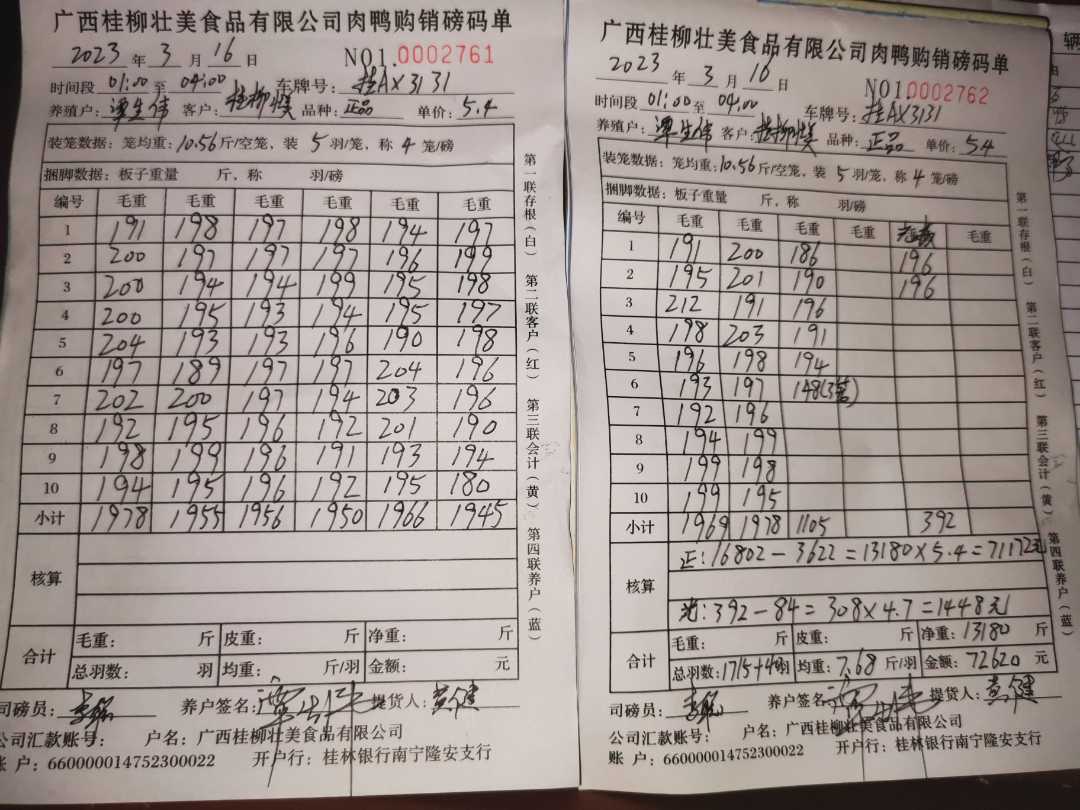 广西桂柳壮美食品有限公司肉鸭购销磅码单
2023 年 3 月 16 日 NO1.0002761
时间段 01:00 至 04:00 车牌号: 桂AX3131
养殖户: 客户: 桂柳 品种: 正品 单价: 5.4
装笼数据: 笼均重: 10.56 斤/空笼, 装 5 羽/笼, 称 4 笼/磅
捆脚数据: 板子重量 斤, 称 羽/磅
编号 毛重 毛重 毛重 毛重 毛重 毛重
1 191 198 197 198 194 197
2 200 197 197 197 196 199
3 200 194 194 199 195 198
4 200 195 193 194 195 197
5 204 193 193 196 190 198
6 197 189 197 197 204 196
7 202 200 197 194 203 196
8 192 195 196 192 201 190
9 198 199 196 191 193 194
10 194 195 196 192 195 180
小计 1978 1955 1956 1950 1966 1945
核算
合计 毛重: 斤 皮重: 斤 净重: 斤
总羽数: 羽 均重: 斤/羽 金额: 元
司磅员: 养户签名: 提货人: 黄健
公司汇款账号: 户名: 广西桂柳壮美食品有限公司
账 户: 660000014752300022 开户行: 桂林银行南宁隆安支行
第一联存根(白) 第二联客户(红) 第三联会计(黄) 第四联养户(蓝)
广西桂柳壮美食品有限公司肉鸭购销磅码单
2023 年 3 月 16 日 NO1.0002762
时间段 01:00 至 04:00 车牌号: 桂AX3131
养殖户: 客户: 桂柳 品种: 正品 单价: 5.4
装笼数据: 笼均重: 10.56 斤/空笼, 装 5 羽/笼, 称 4 笼/磅
捆脚数据: 板子重量 斤, 称 羽/磅
编号 毛重 毛重 毛重 毛重 毛重
1 191 200 186 196
2 195 201 190 196
3 212 191 196
4 198 203 191
5 196 198 194
6 193 197 148(3笼)
7 192 196
8 194 199
9 199 198
10 199 195
小计 1969 1978 1105 392
核算 正: 16802-3622=13180×5.4=71172元
光: 392-84=308×4.7=1448元
合计 毛重: 斤 皮重: 斤 净重: 13180 斤
总羽数: 1715+40羽 均重: 7.68 斤/羽 金额: 72620 元
司磅员: 养户签名: 提货人: 黄健
公司汇款账号: 户名: 广西桂柳壮美食品有限公司
账 户: 660000014752300022 开户行: 桂林银行南宁隆安支行
第一联存根(白) 第二联客户(红) 第三联会计(黄) 第四联养户(蓝)